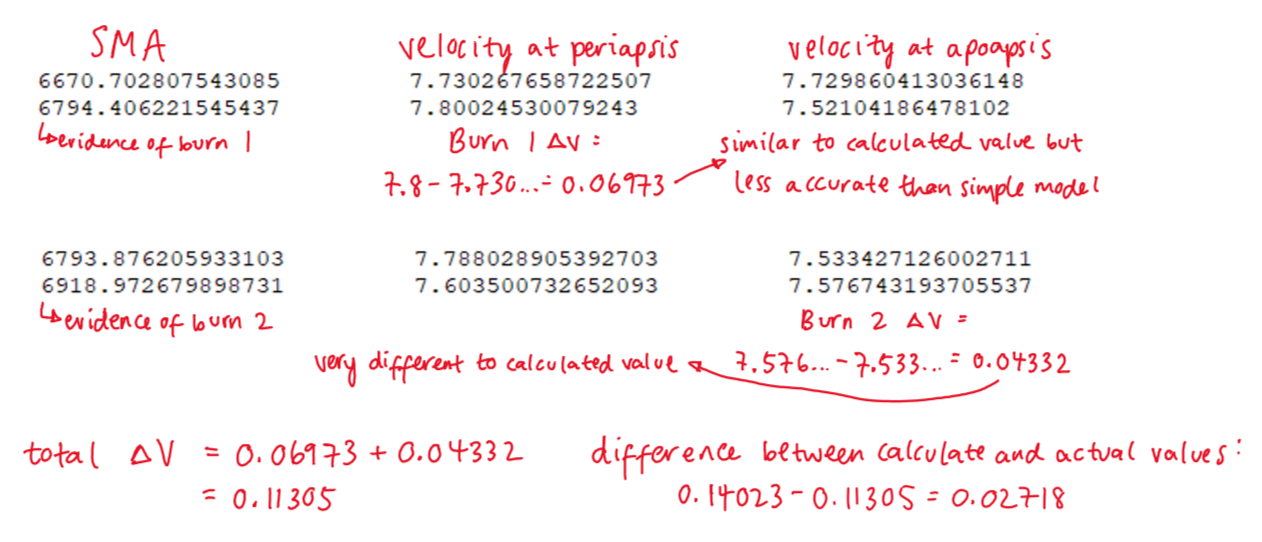 SMA velocity at periapsis velocity at apoapsis
6670.702807543085 7.730267658722507 7.729860413036148
6794.406221545437 7.80024530079243 7.52104186478102
↳evidence of burn 1 Burn 1 ΔV = similar to calculated value but
7.8 - 7.730... = 0.06973 less accurate than simple model
6793.876205933103 7.788028905392703 7.533427126002711
6918.972679898731 7.603500732652093 7.576743193705537
↳evidence of burn 2 Burn 2 ΔV =
very different to calculated value 7.576... - 7.533... = 0.04332
total ΔV = 0.06973 + 0.04332 difference between calculate and actual values:
= 0.11305 0.14023 - 0.11305 = 0.02718